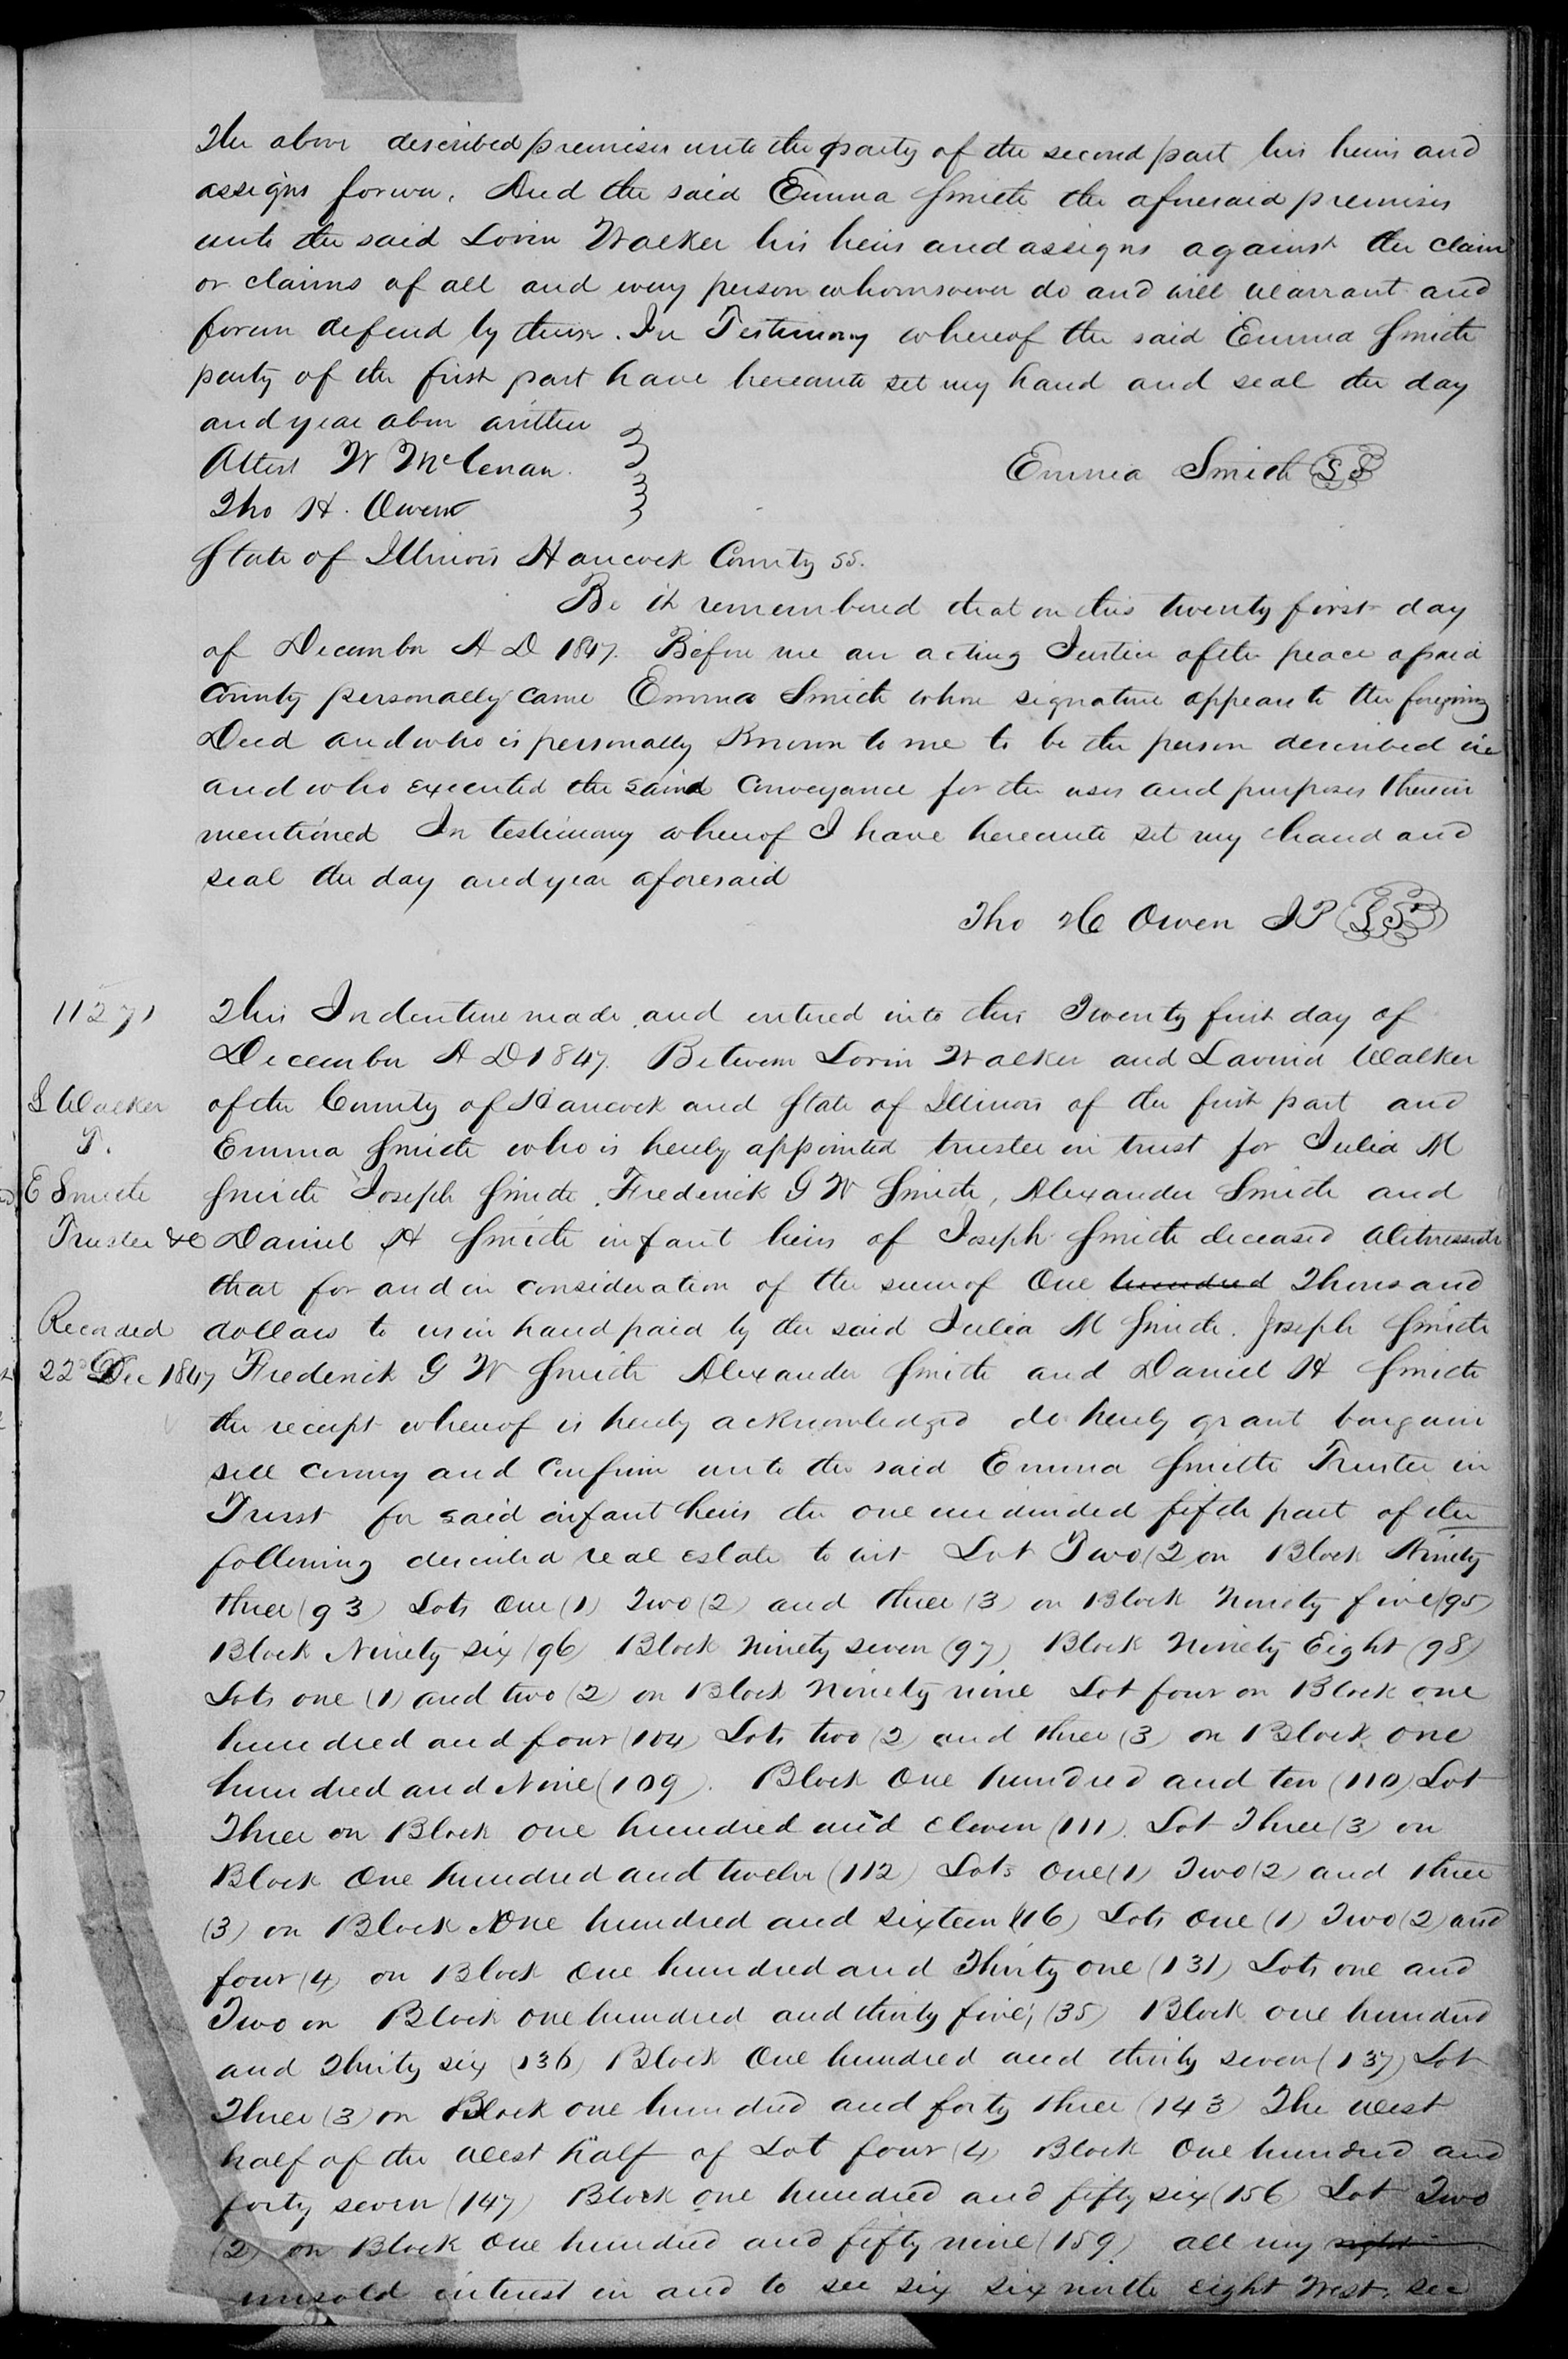 The above described premises unto the party of the second part his heirs and
assigns forever. And the said Emma Smith the aforesaid premises
unto the said Lorin Walker his heirs and assigns against the claim
or claims of all and every person whomsoever do and will warrant and
forever defend by these. In Testimony whereof the said Emma Smith
party of the first part have hereunto set my hand and seal the day
and year above written
Attest W McLenan
Emma Smith LS
Tho H. Owen
State of Illinois Hancock County ss.
Be it remembered that on this twenty first day
of December A D 1847. Before me an acting Justice of the peace afsaid
County personally came Emma Smith whose signature appears to the foregoing
Deed and who is personally Known to me to be the person described in
and who executed the said Conveyance for the uses and purposes therein
mentioned In testimony whereof I have hereunto set my hand and
seal the day and year aforesaid
Tho H Owen JP LS
11271
This Indenture made and entered into this Twenty first day of
December A D 1847. Between Lorin Walker and Lavina Walker
L Walker
of the County of Hancock and State of Illinois of the first part and
T.
Emma Smith who is hereby appointed trustee in trust for Julia M
E Smith
Smith Joseph Smith, Frederick G W Smith, Alexander Smith and
Trustee &c
Daniel H Smith infant heirs of Joseph Smith deceased Witnesseth
that for and in consideration of the sum of One hundred Thousand
Recorded
dollars to us in hand paid by the said Julia M Smith. Joseph Smith
22d Dec 1847
Frederick G W Smith Alexander Smith and Daniel H Smith
the receipt whereof is hereby acknowledged do hereby grant bargain
sell convey and Confirm unto the said Emma Smith Trustee in
Trust for said infant heirs the one undivided fifth part of the
following described real estate to wit Lot Two (2 on Block Ninety
three (93) Lots One (1) Two (2) and three (3) on Block Ninety five (95)
Block Ninety six (96) Block Ninety seven (97) Block Ninety Eight (98)
Lots one (1) and two (2) on Block Ninety nine Lot four on Block one
hundred and four (104) Lots two (2) and three (3) on Block one
hundred and Nine (109). Block One hundred and ten (110) Lot
Three on Block one hundred and eleven (111). Lot Three (3) on
Block One hundred and twelve (112) Lots One (1) Two (2) and three
(3) on Block One hundred and sixteen (116) Lots One (1) Two (2) and
four (4) on Block One hundred and Thirty one (131) Lots one and
Two on Block one hundred and thirty five, (35) Block one hundred
and Thirty six (136) Block One hundred and thirty seven (137) Lot
Three (3) on Block one hundred and forty three (143) The West
half of the West half of Lot four (4) Block One hundred and
forty seven (147) Block one hundred and fifty six (156) Lot Two
(2) on Block One hundred and fifty nine (159) all my right
unsold interest in and to sec six six north eight West. sec